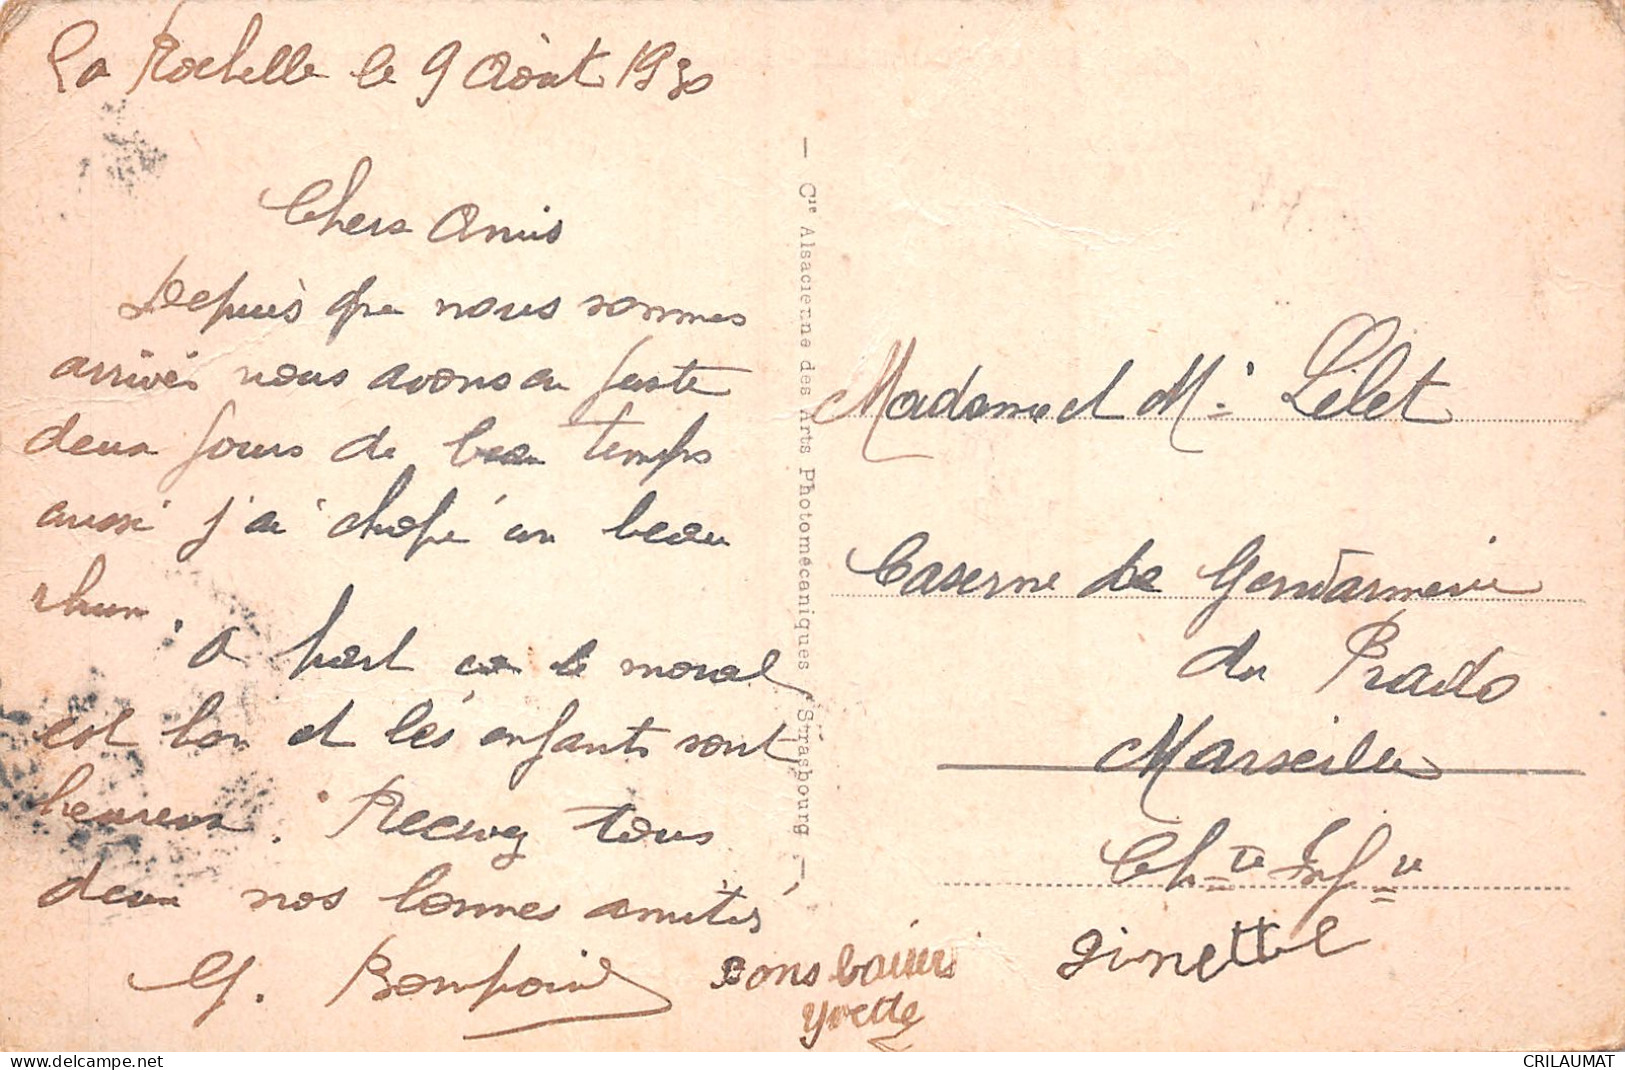 La Rochelle le 9 Août 1930
Chers Amis
Depuis que nous sommes
arrivés nous avons eu juste
deux jours de beau temps
aussi j'ai chopé un beau
rhum. A part ça le moral
est bon et les enfants sont
heureux. Recevez tous
deux nos bonnes amitiés
G. Bompoint
bons baisers
Yvette
Ginette
— Cie Alsacienne des Arts Photomécaniques, Strasbourg —
Madame et Mr Lelet
Caserne de Gendarmerie
du Prado
Marseille
Chte Infre
CRILAUMAT